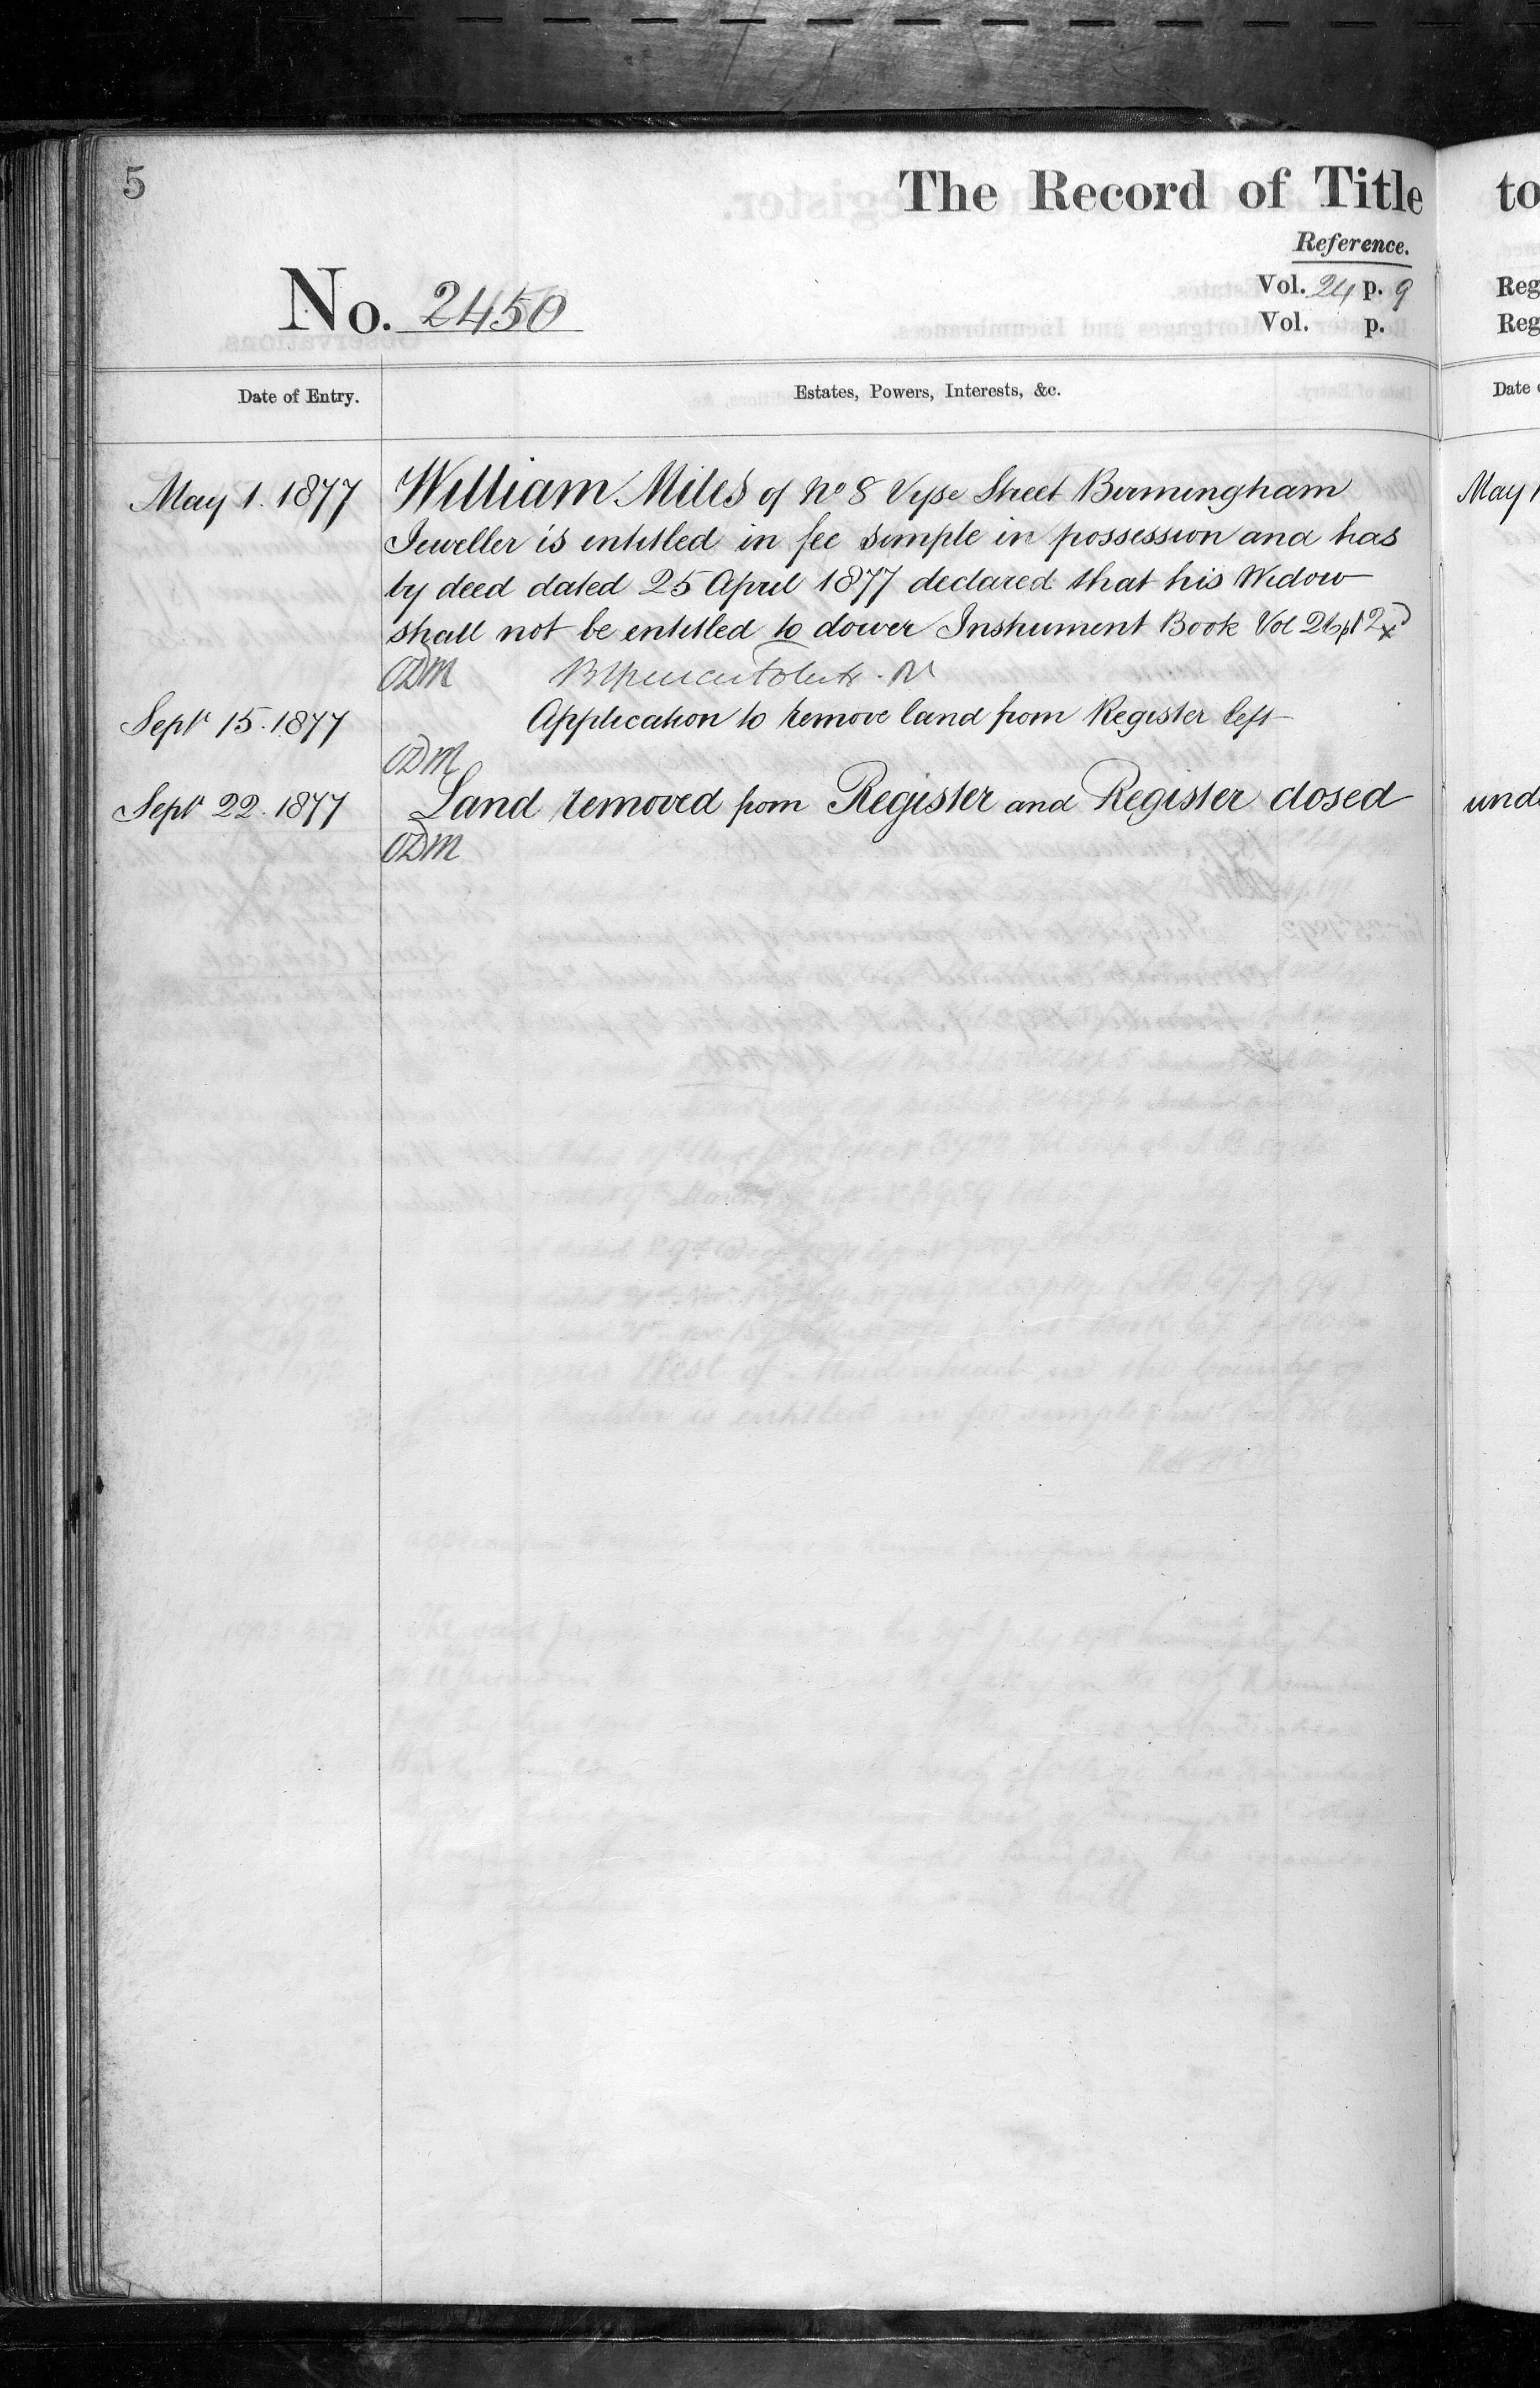 5
The Record of Title
to
Reference.
No. 2450
Vol. 24 p. 9
Reg
Vol. p.
Reg
Date of Entry.
Estates, Powers, Interests, &c.
Date
May 1. 1877
William Miles of No 8 Vyse Street Birmingham
May 1
Jeweller is entitled in fee simple in possession and has
by deed dated 25 April 1877 declared that his Widow
shall not be entitled to dower Instrument Book Vol
ODM
Sept 15. 1877
Application to remove land from Register left
ODM
Sept 22. 1877
Land removed from Register and Register closed
und
ODM